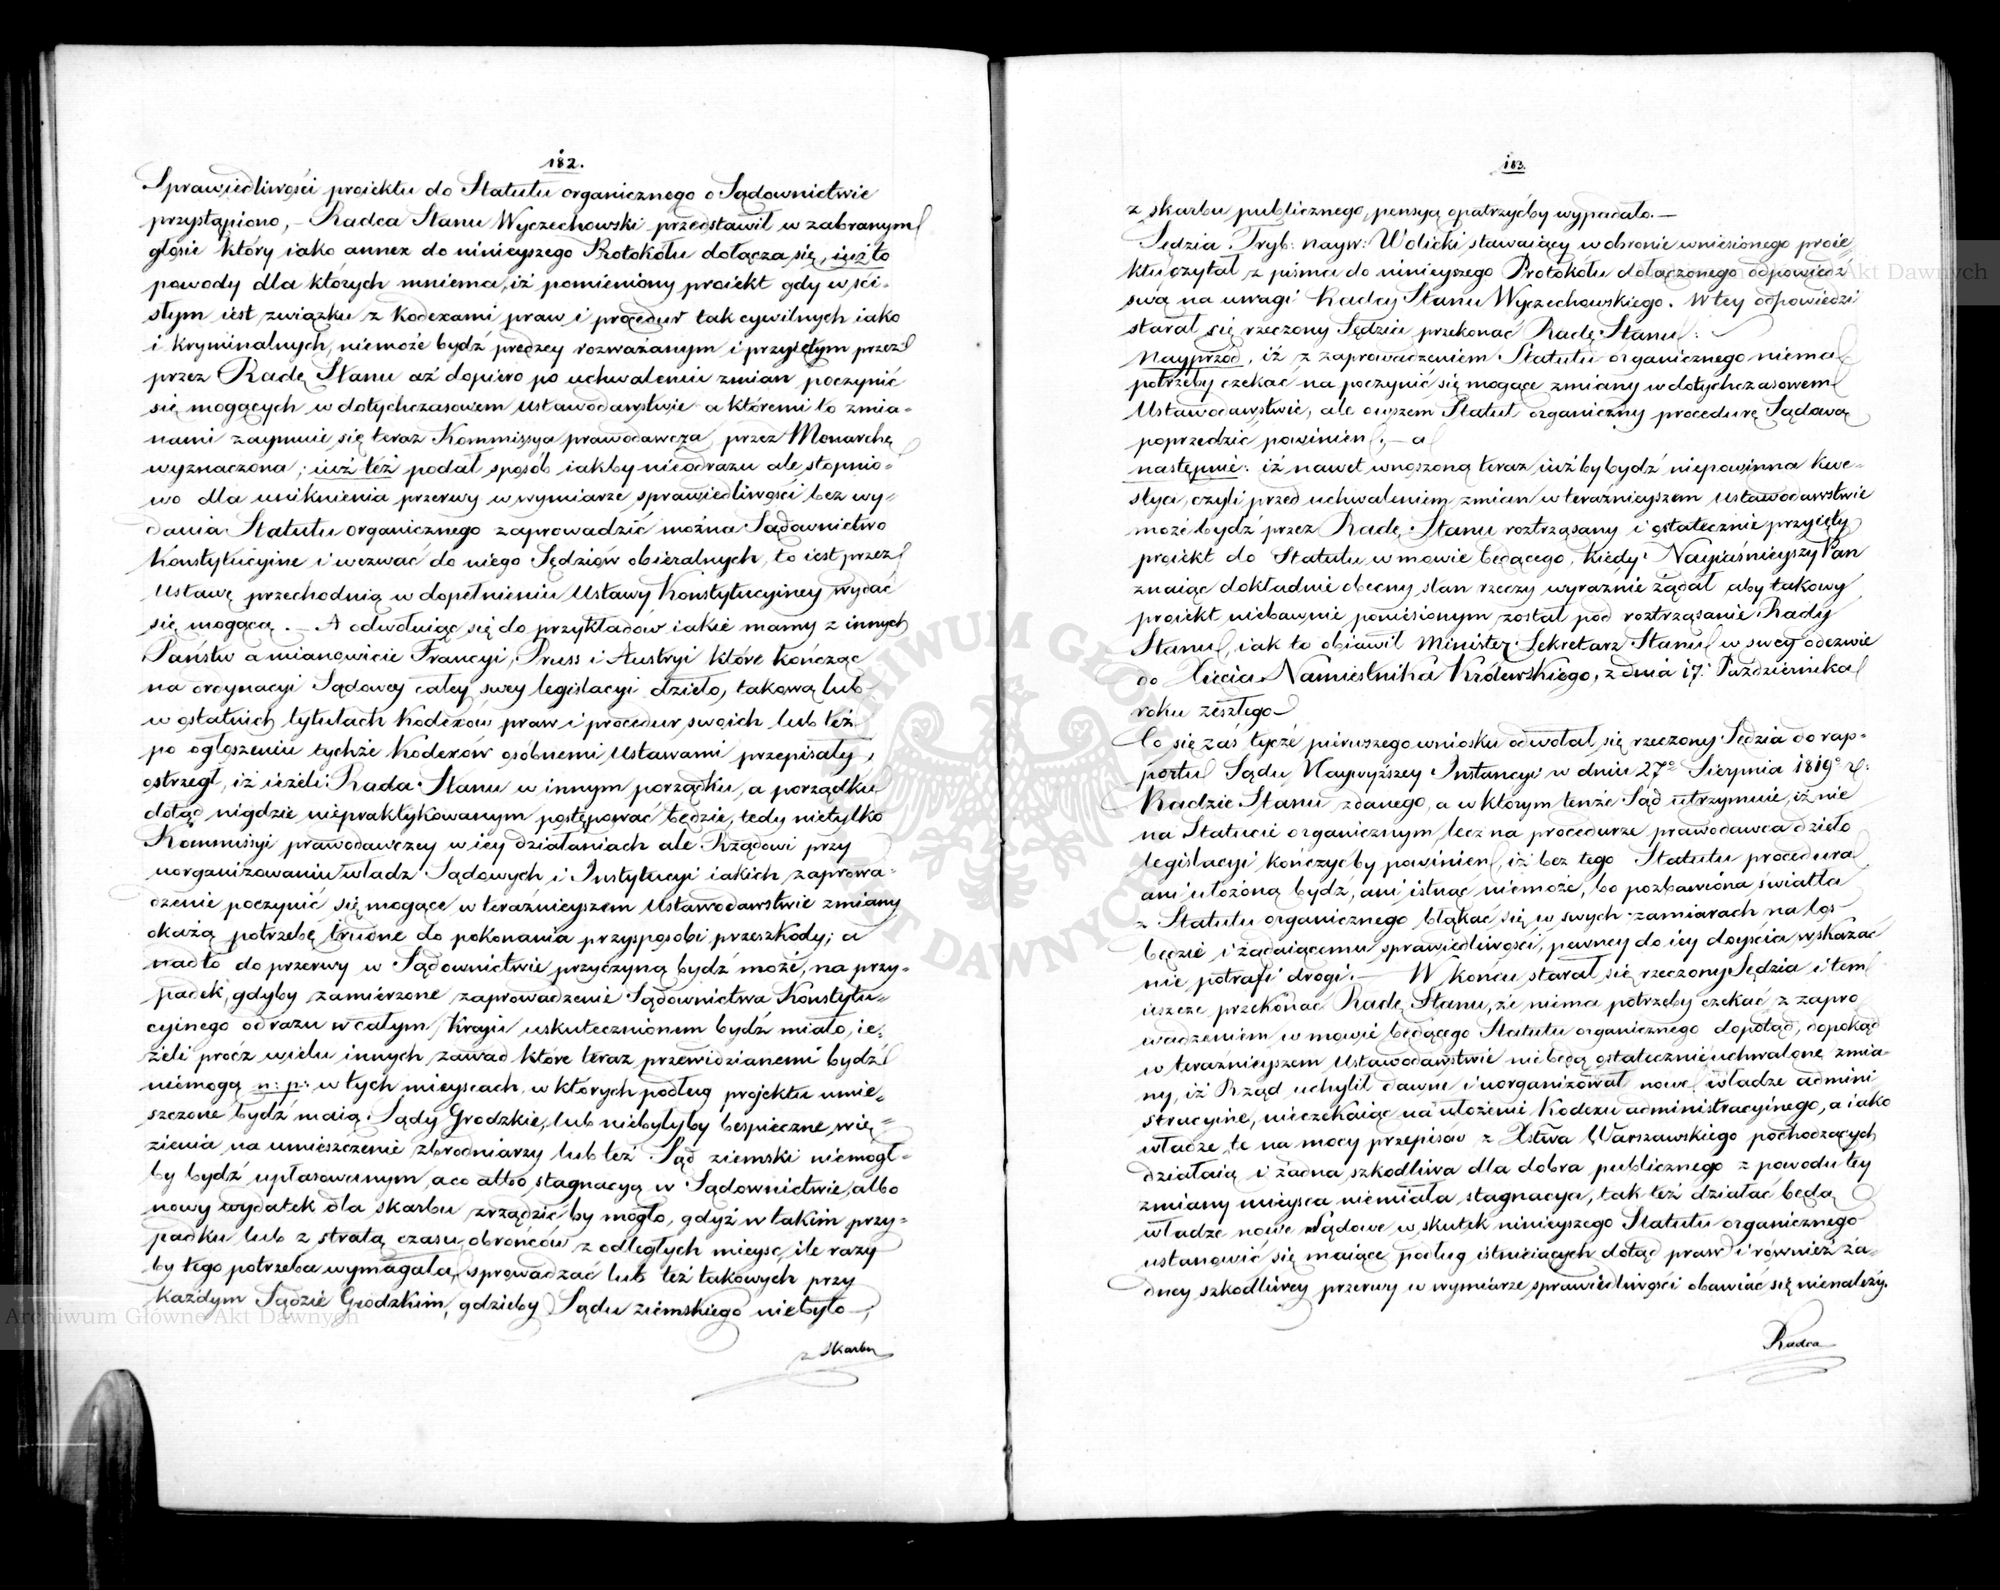 182.
Sprawiedliwości proiektu do Statutu organicznego o Sądownictwie
przystąpiono, – Radca Stanu Wyczechowski przedstawił w zabranym
głosie który iako annex do ninieyszego Protokołu dołącza się, iuż to
powody dla których mniema, iż pomieniony proiekt gdy w ści-
słym iest związku z Kodexami praw i procedur tak cywilnych iako
i kryminalnych, niemoże bydź prędzey rozważanym i przyiętym przez
przez Radę Stanu aż dopiero po uchwaleniu zmian poczynić
się mogących w dotychczasowem Ustawodawstwie a któremi to zmia-
nami zaymuie się teraz Kommissya prawodawcza przez Monarchę
wyznaczona; iuż też podał sposób iakby nieodrazu ale stopnio-
wo dla uniknienia przerwy w wymiarze sprawiedliwości bez wy-
dania Statutu organicznego zaprowadzić można Sądownictwo
Konstytucyine i wezwać do niego Sędziów obieralnych, to iest przez
Ustawę przechodnią w dopełnieniu Ustawy Konstytucyiney wydać
się mogącą. – A odwołuiąc się do przykładów iakie mamy z innych
Państw a mianowicie Francyi, Pruss i Austryi które kończąc
na ordynacyi Sądowey całey swey legislacyi dzieło, takową lub
w ostatnich tytułach Kodexów praw i procedur swoich lub też
po ogłoszeniu tychże Kodexów osóbnemi Ustawami przepisały,
ostrzegł, iż ieżeli Rada Stanu w innym porządku, a porządku
dotąd nigdzie niepraktykowanym postępować będzie, tedy nietylko
Kommissyi prawodawczey w iey działaniach ale Rządowi przy
uorganizowaniu władz Sądowych i Instytucyi iakich zaprowa-
dzenie poczynić się mogące w teraźnieyszem Ustawodawstwie zmiany
okażą potrzebę trudne do pokonania przysposobi przeszkody; a
nadto do przerwy w Sądownictwie przyczyną bydź może, na przy-
padek, gdyby zamierzone zaprowadzenie Sądownictwa Konstytu-
cyinego odrazu w całym Kraju uskutecznionem bydź miało, ie-
żeli prócz wielu innych zawad które teraz przewidzianemi bydź
niemogą n: p: w tych mieyscach w których podług projektu umie-
szczone bydź maią Sądy Grodzkie, lub niebyłyby bespieczne wię-
zienia na umieszczenie zbrodniarzy lub też Sąd ziemski niemogł-
by bydź uplasowanym, a co albo stagnacyą w Sądownictwie, albo
nowy wydatek dla skarbu zrządzić by mogło, gdyż w takim przy-
padku lub z stratą czasu obrońców z odległych mieysc, ile razy
by tego potrzeba wymagała, sprowadzać lub też takowych przy
każdym Sądzie Grodzkim, gdzieby Sądu ziemskiego niebyło –,
z skarbu
183.
z skarbu publicznego, pensyą opatrzyćby wypadało. –
Sędzia Tryb: nayw: Wolicki stawaiący w obronie wniesionego proie-
ktu czytał z pisma do ninieyszego Protokołu dołączonego odpowiedź
swą na uwagi Radcy Stanu Wyczechowskiego. W tey odpowiedzi
starał się rzeczony Sędzia przekonać Radę Stanu:
Nayprzód, iż z zaprowadzeniem Statutu organicznego niema
potrzeby czekać na poczynić się mogące zmiany w dotychczasowem
Ustawodawstwie, ale owszem Statut organiczny procedurę Sądową
poprzedzić powinien; – a
następnie: iż nawet wnoszoną teraz iuż by bydź niepowinna kwe-
stya, czyli przed uchwaleniem zmian w teraźnieyszem Ustawodawstwie
może bydź przez Radę Stanu roztrząsany i ostatecznie przyięty
proiekt do Statutu w mowie będącego, kiedy Nayiaśnieyszy Pan
znaiąc dokładnie obecny stan rzeczy wyraźnie żądał aby takowy
proiekt niebawnie poniesionym został pod roztrząsanie Rady
Stanu, iak to obiawił Minister Sekretarz Stanu w swey odezwie
do Xięcia Namiestnika Królewskiego, z dnia 17. Października
roku zeszłego
Co się zaś tycze pierwszego wniosku odwołał się rzeczony Sędzia do rap-
portu Sądu Naywyższey Instancyi w dniu 27º Sierpnia 1819º r:
Radzie Stanu zdanego, a w którym tenże Sąd utrzymuie, iż nie
na Statucie organicznym lecz na procedurze prawodawca dzieło
legislacyi kończyć by powinien, iż bez tego Statutu procedura
ani ułożoną bydź, ani istnąć niemoże, bo pozbawiona światła
z Statutu organicznego błąkać się w swych zamiarach na los
będzie i żądaiącemu sprawiedliwości, pewney do iey doyścia wskazać
nie potrafi drogi. – W końcu starał się rzeczony Sędzia i tem
ieszcze przekonać Radę Stanu, że niema potrzeby czekać z zapro
wadzeniem w mowie będącego Statutu organicznego dopotąd, dopokąd
w teraźnieyszem Ustawodawstwie niebędą ostatecznie uchwalone zmia-
ny, iż Rząd uchylił dawne i uorganizował nowe władze admini
stracyine, nieczekaiąc na ułożenie Kodexu administracyinego, a iako
władze te na mocy przepisów z Xstwa Warszawskiego pochodzących
działaią i żadna szkodliwa dla dobra publicznego z powodu tey
zmiany mieysca niemiała stagnacya, tak też działać będą
władze nowe Sądowe w skutek ninieyszego Statutu organicznego
ustanowić się maiące podług istnieiących dotąd praw i również ża-
dney szkodliwey przerwy w wymiarze sprawiedliwości obawiać się nienależy.
Radca
Archiwum Główne Akt Dawnych